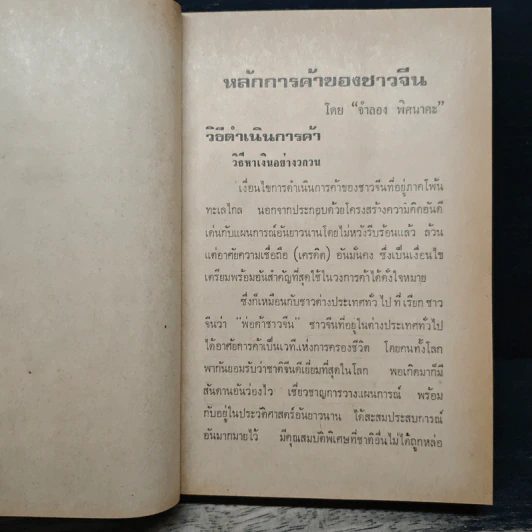 หลักการค้าของชาวจีน
โดย “จำลอง พิศนาคะ”
วิธีดำเนินการค้า
วิธีหาเงินอย่างวกวน
เงื่อนไขการดำเนินการค้าของชาวจีนที่อยู่ภาคโพ้น
ทะเลไกล นอกจากประกอบด้วยโครงสร้างความคิดอันดี
เด่นกับแผนการณ์อันยาวนานโดยไม่หวังรีบร้อนแล้ว ล้วน
แต่อาศัยความเชื่อถือ (เครดิต) อันมั่นคง ซึ่งเป็นเงื่อนไข
เตรียมพร้อมอันสำคัญที่สุดใช้ในวงการค้าได้ดั่งใจหมาย
ซึ่งก็เหมือนกับชาวต่างประเทศทั่วไป ที่เรียกชาว
จีนว่า “พ่อค้าชาวจีน” ชาวจีนที่อยู่ในต่างประเทศทั่วไป
ได้อาศัยการค้าเป็นเวทีแห่งการครองชีวิต โดยคนทั้งโลก
พากันยอมรับว่าชาติจีนดีเยี่ยมที่สุดในโลก พอเกิดมาก็มี
สันดานอันว่องไว เชี่ยวชาญการวางแผนการณ์ พร้อม
กับอยู่ในประวัติศาสตร์อันยาวนาน ได้สะสมประสบการณ์
อันมากมายไว้ มีคุณสมบัติพิเศษที่ชาติอื่นไม่ได้ถูกหล่อ